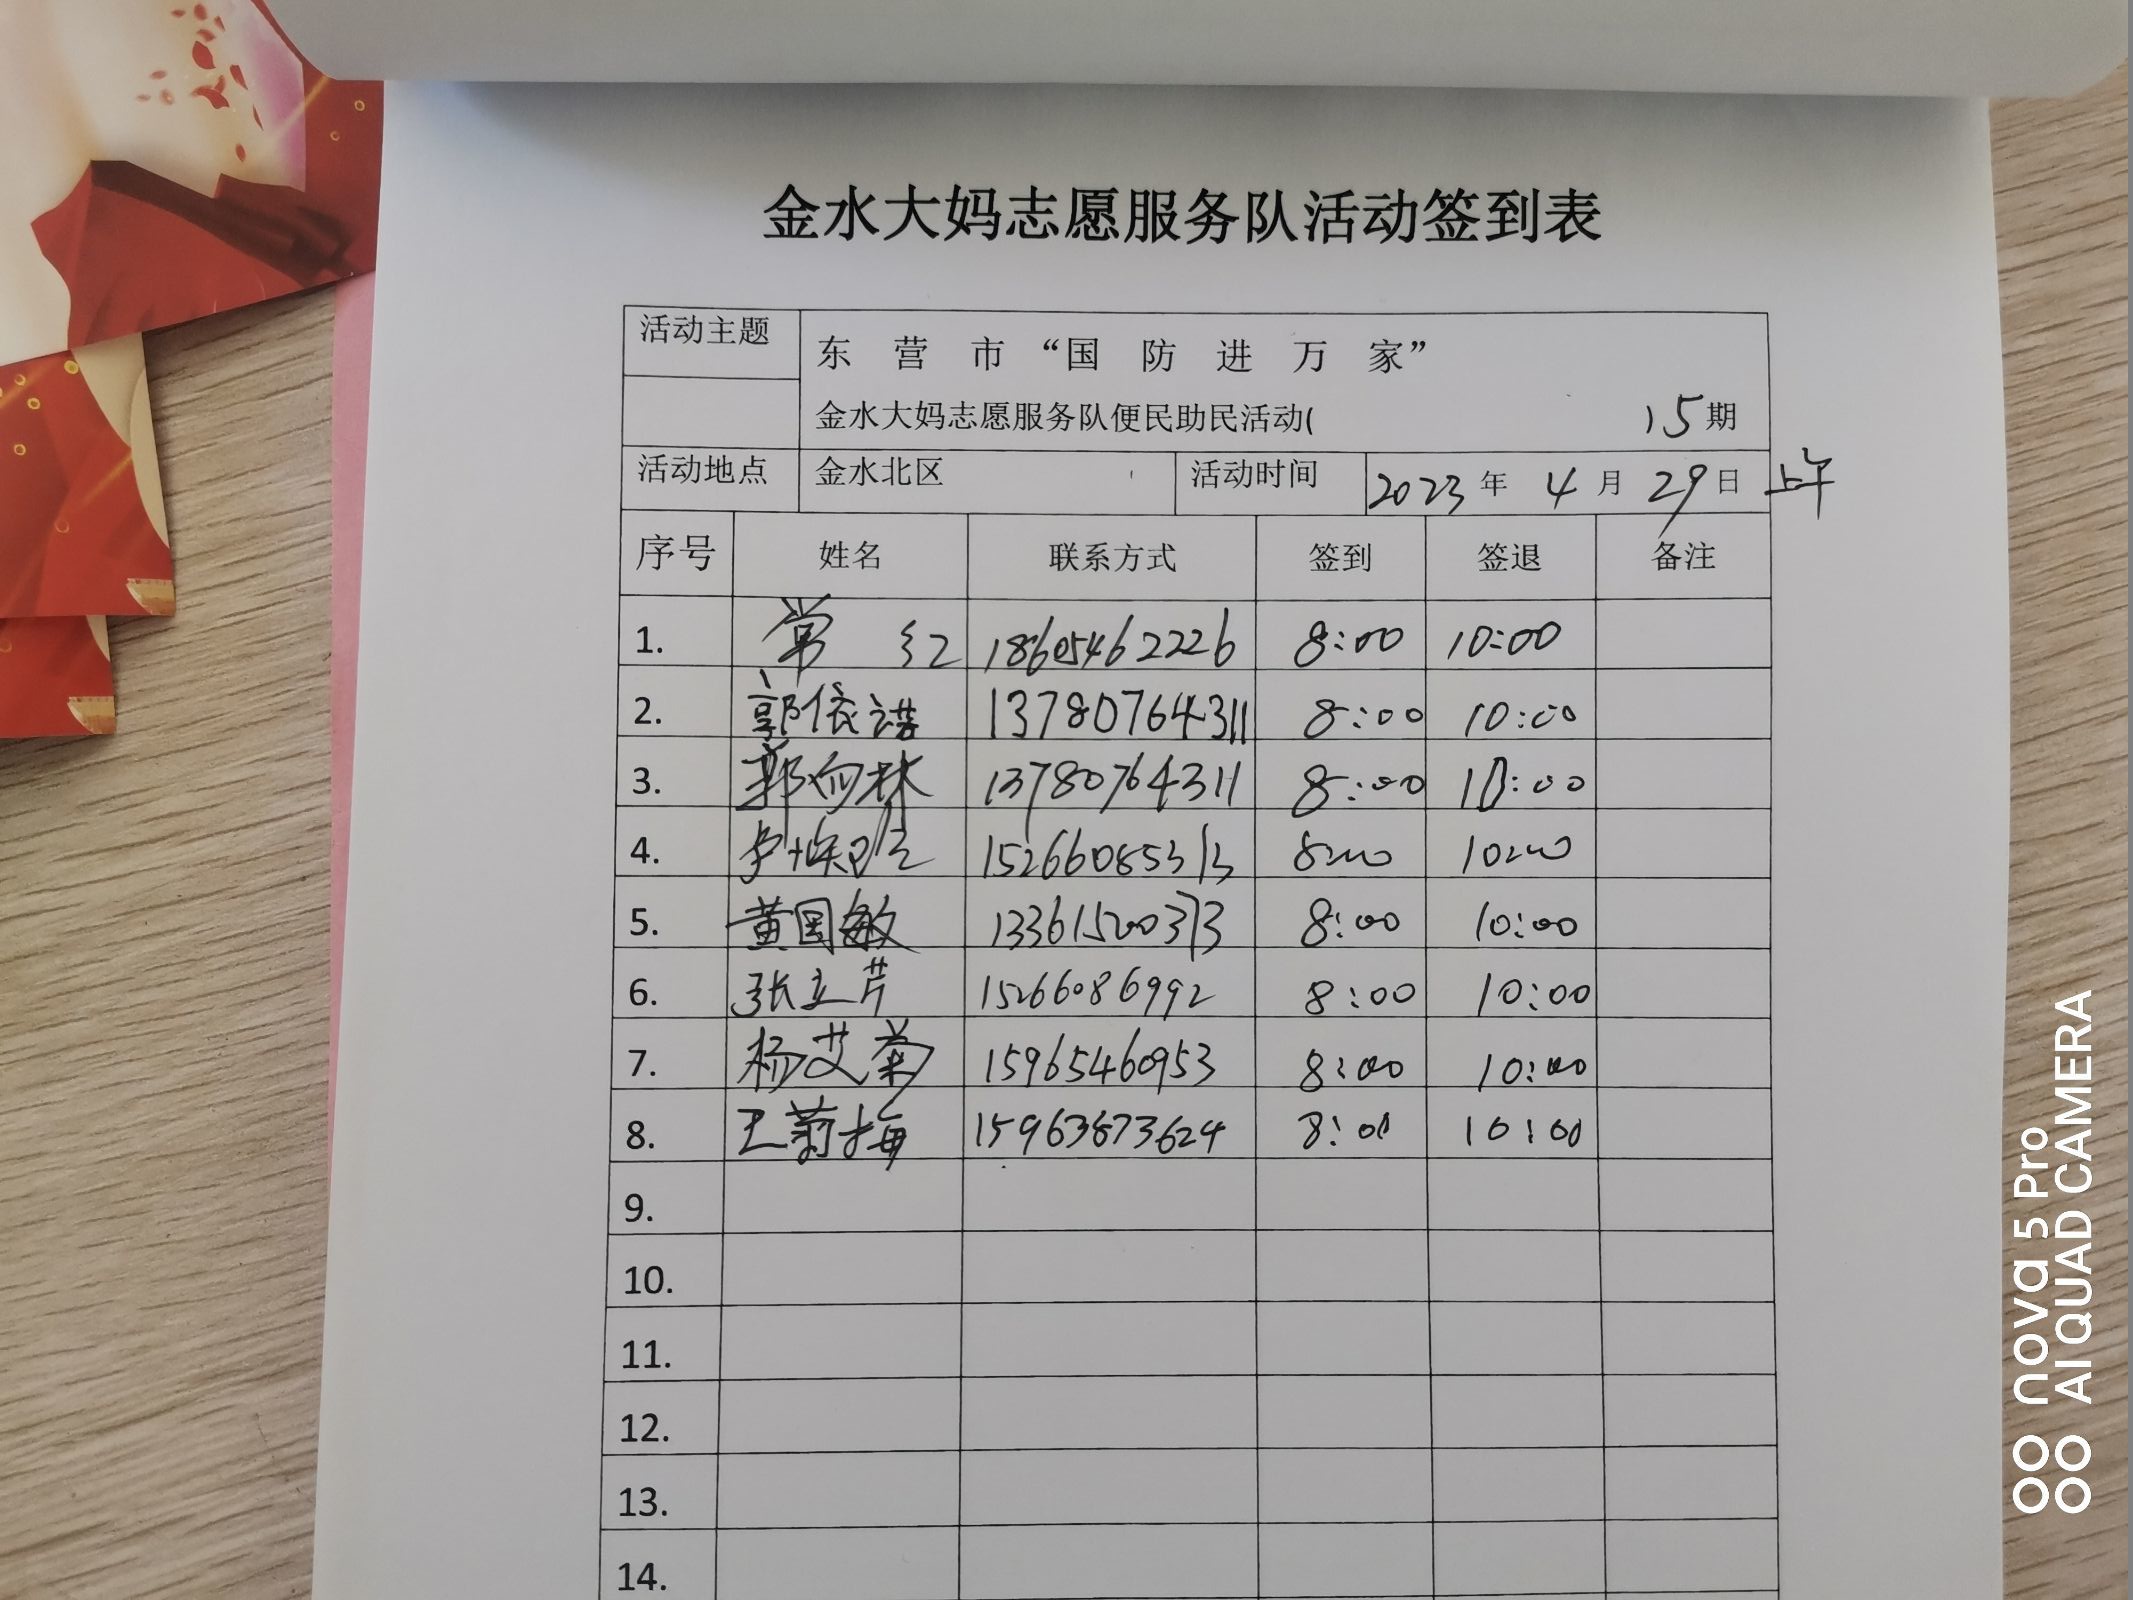 金水大妈志愿服务队活动签到表
活动主题 东营市“国防进万家”
金水大妈志愿服务队便民助民活动( 15期
活动地点 金水北区 活动时间 2023年4月29日 上午
序号 姓名 联系方式 签到 签退 备注
1. 常红 18605462226 8:00 10:00
2. 郭依诺 13780764311 8:00 10:00
3. 郭向林 13780764311 8:00 10:00
4. 15266085313 8:00 10:00
5. 黄国敏 13361500373 8:00 10:00
6. 张立芹 15266086992 8:00 10:00
7. 杨艾菊 15965460953 8:00 10:00
8. 王菊梅 15963873624 8:00 10:00
9.
10.
11.
12.
13.
14.
nova 5 Pro
AI QUAD CAMERA